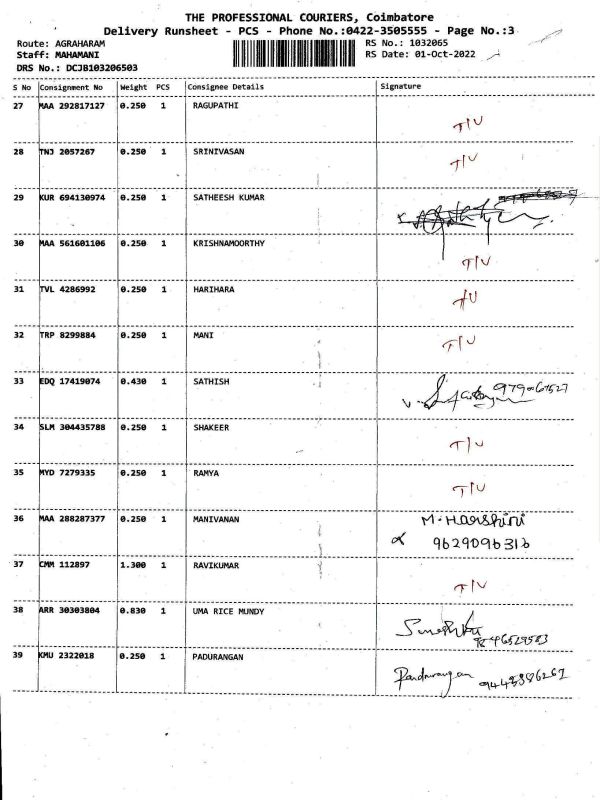 THE PROFESSIONAL COURIERS, Coimbatore
Delivery Runsheet - PCS - Phone No.:0422-3505555 - Page No.:3
Route: AGRAHARAM
RS No.: 1032065
Staff: MAHAMANI
RS Date: 01-Oct-2022
DRS No.: DCJB103206503
S No Consignment No Weight PCS Consignee Details Signature
27 MAA 292817127 0.250 1 RAGUPATHI T/U
28 TNJ 2057267 0.250 1 SRINIVASAN T/U
29 KUR 694130974 0.250 1 SATHEESH KUMAR
30 MAA 561601106 0.250 1 KRISHNAMOORTHY T/U
31 TVL 4286992 0.250 1 HARIHARA T/U
32 TRP 8299884 0.250 1 MANI T/U
33 EDQ 17419074 0.430 1 SATHISH
34 SLM 304435788 0.250 1 SHAKEER T/U
35 MYD 7279335 0.250 1 RAMYA T/U
36 MAA 288287377 0.250 1 MANIVANAN M. Harshini
9629096316
37 CMM 112897 1.300 1 RAVIKUMAR T/U
38 ARR 30303804 0.830 1 UMA RICE MUNDY
39 KMU 2322018 0.250 1 PADURANGAN Pandurangan